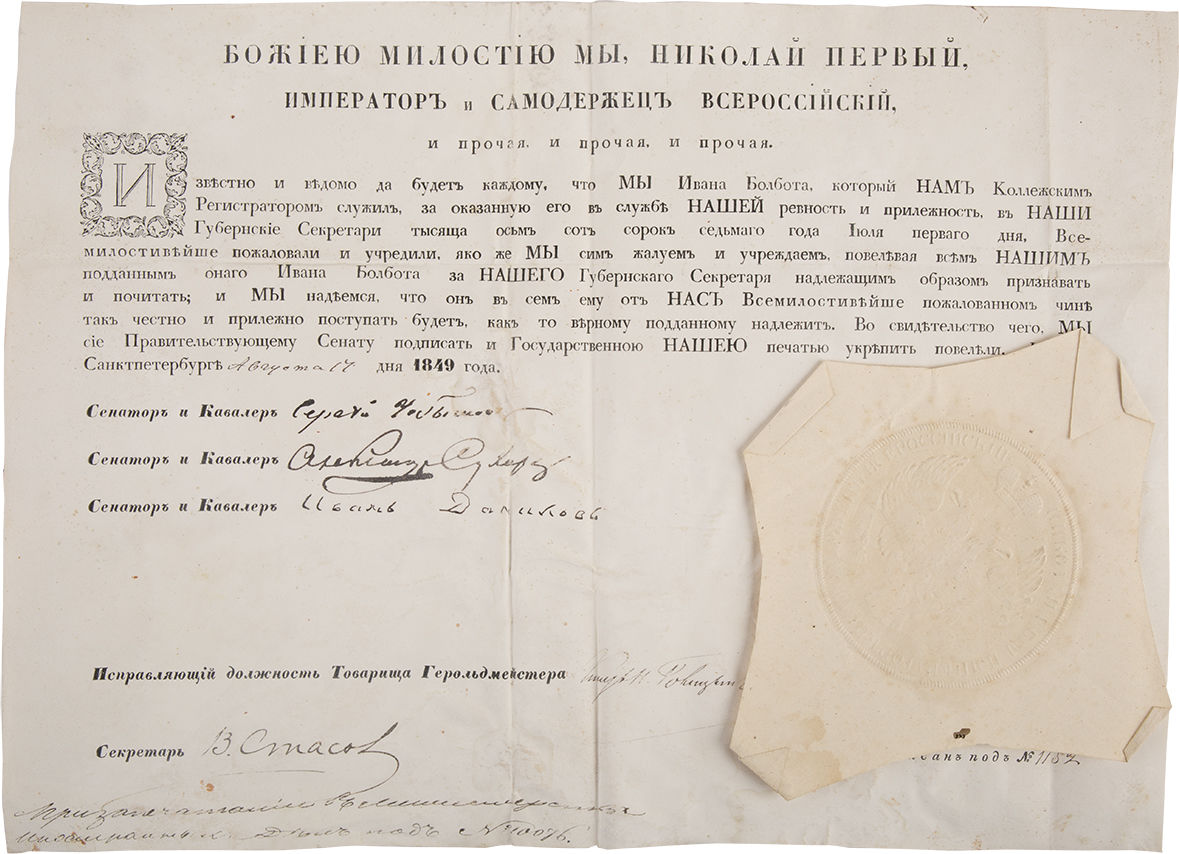 БОЖІЕЮ МИЛОСТІЮ МЫ, НИКОЛАЙ ПЕРВЫЙ,
ИМПЕРАТОРЪ и САМОДЕРЖЕЦЪ ВСЕРОССІЙСКІЙ,
и прочая, и прочая, и прочая.
Извѣстно и вѣдомо да будетъ каждому, что МЫ Ивана Болбота, который НАМЪ Коллежскимъ
Регистраторомъ служилъ, за оказанную его въ службѣ НАШЕЙ ревность и прилежность, въ НАШИ
Губернскіе Секретари тысяща осьмъ сотъ сорокъ седьмаго года Іюля перваго дня, Все-
милостивѣйше пожаловали и учредили, яко же МЫ симъ жалуемъ и учреждаемъ, повелѣвая всѣмъ НАШИМЪ
подданнымъ онаго Ивана Болбота за НАШЕГО Губернскаго Секретаря надлежащимъ образомъ признавать
и почитать; и МЫ надѣемся, что онъ въ семъ ему отъ НАСЪ Всемилостивѣйше пожалованномъ чинѣ
такъ честно и прилежно поступать будетъ, какъ то вѣрному подданному надлежитъ. Во свидѣтельство чего, МЫ
сіе Правительствующему Сенату подписать и Государственною НАШЕЮ печатью укрѣпить повелѣли.
Санктпетербургѣ Августа 17 дня 1849 года.
Сенаторъ и Кавалеръ Сергѣй
Сенаторъ и Кавалеръ
Сенаторъ и Кавалеръ Иванъ Даниловъ
Исправляющій должность Товарища Герольдмейстера
Секретарь В. Стасов
под № 1182
При запечатаніи въ Министерствѣ
Иностранныхъ Дѣлъ подъ №10076.